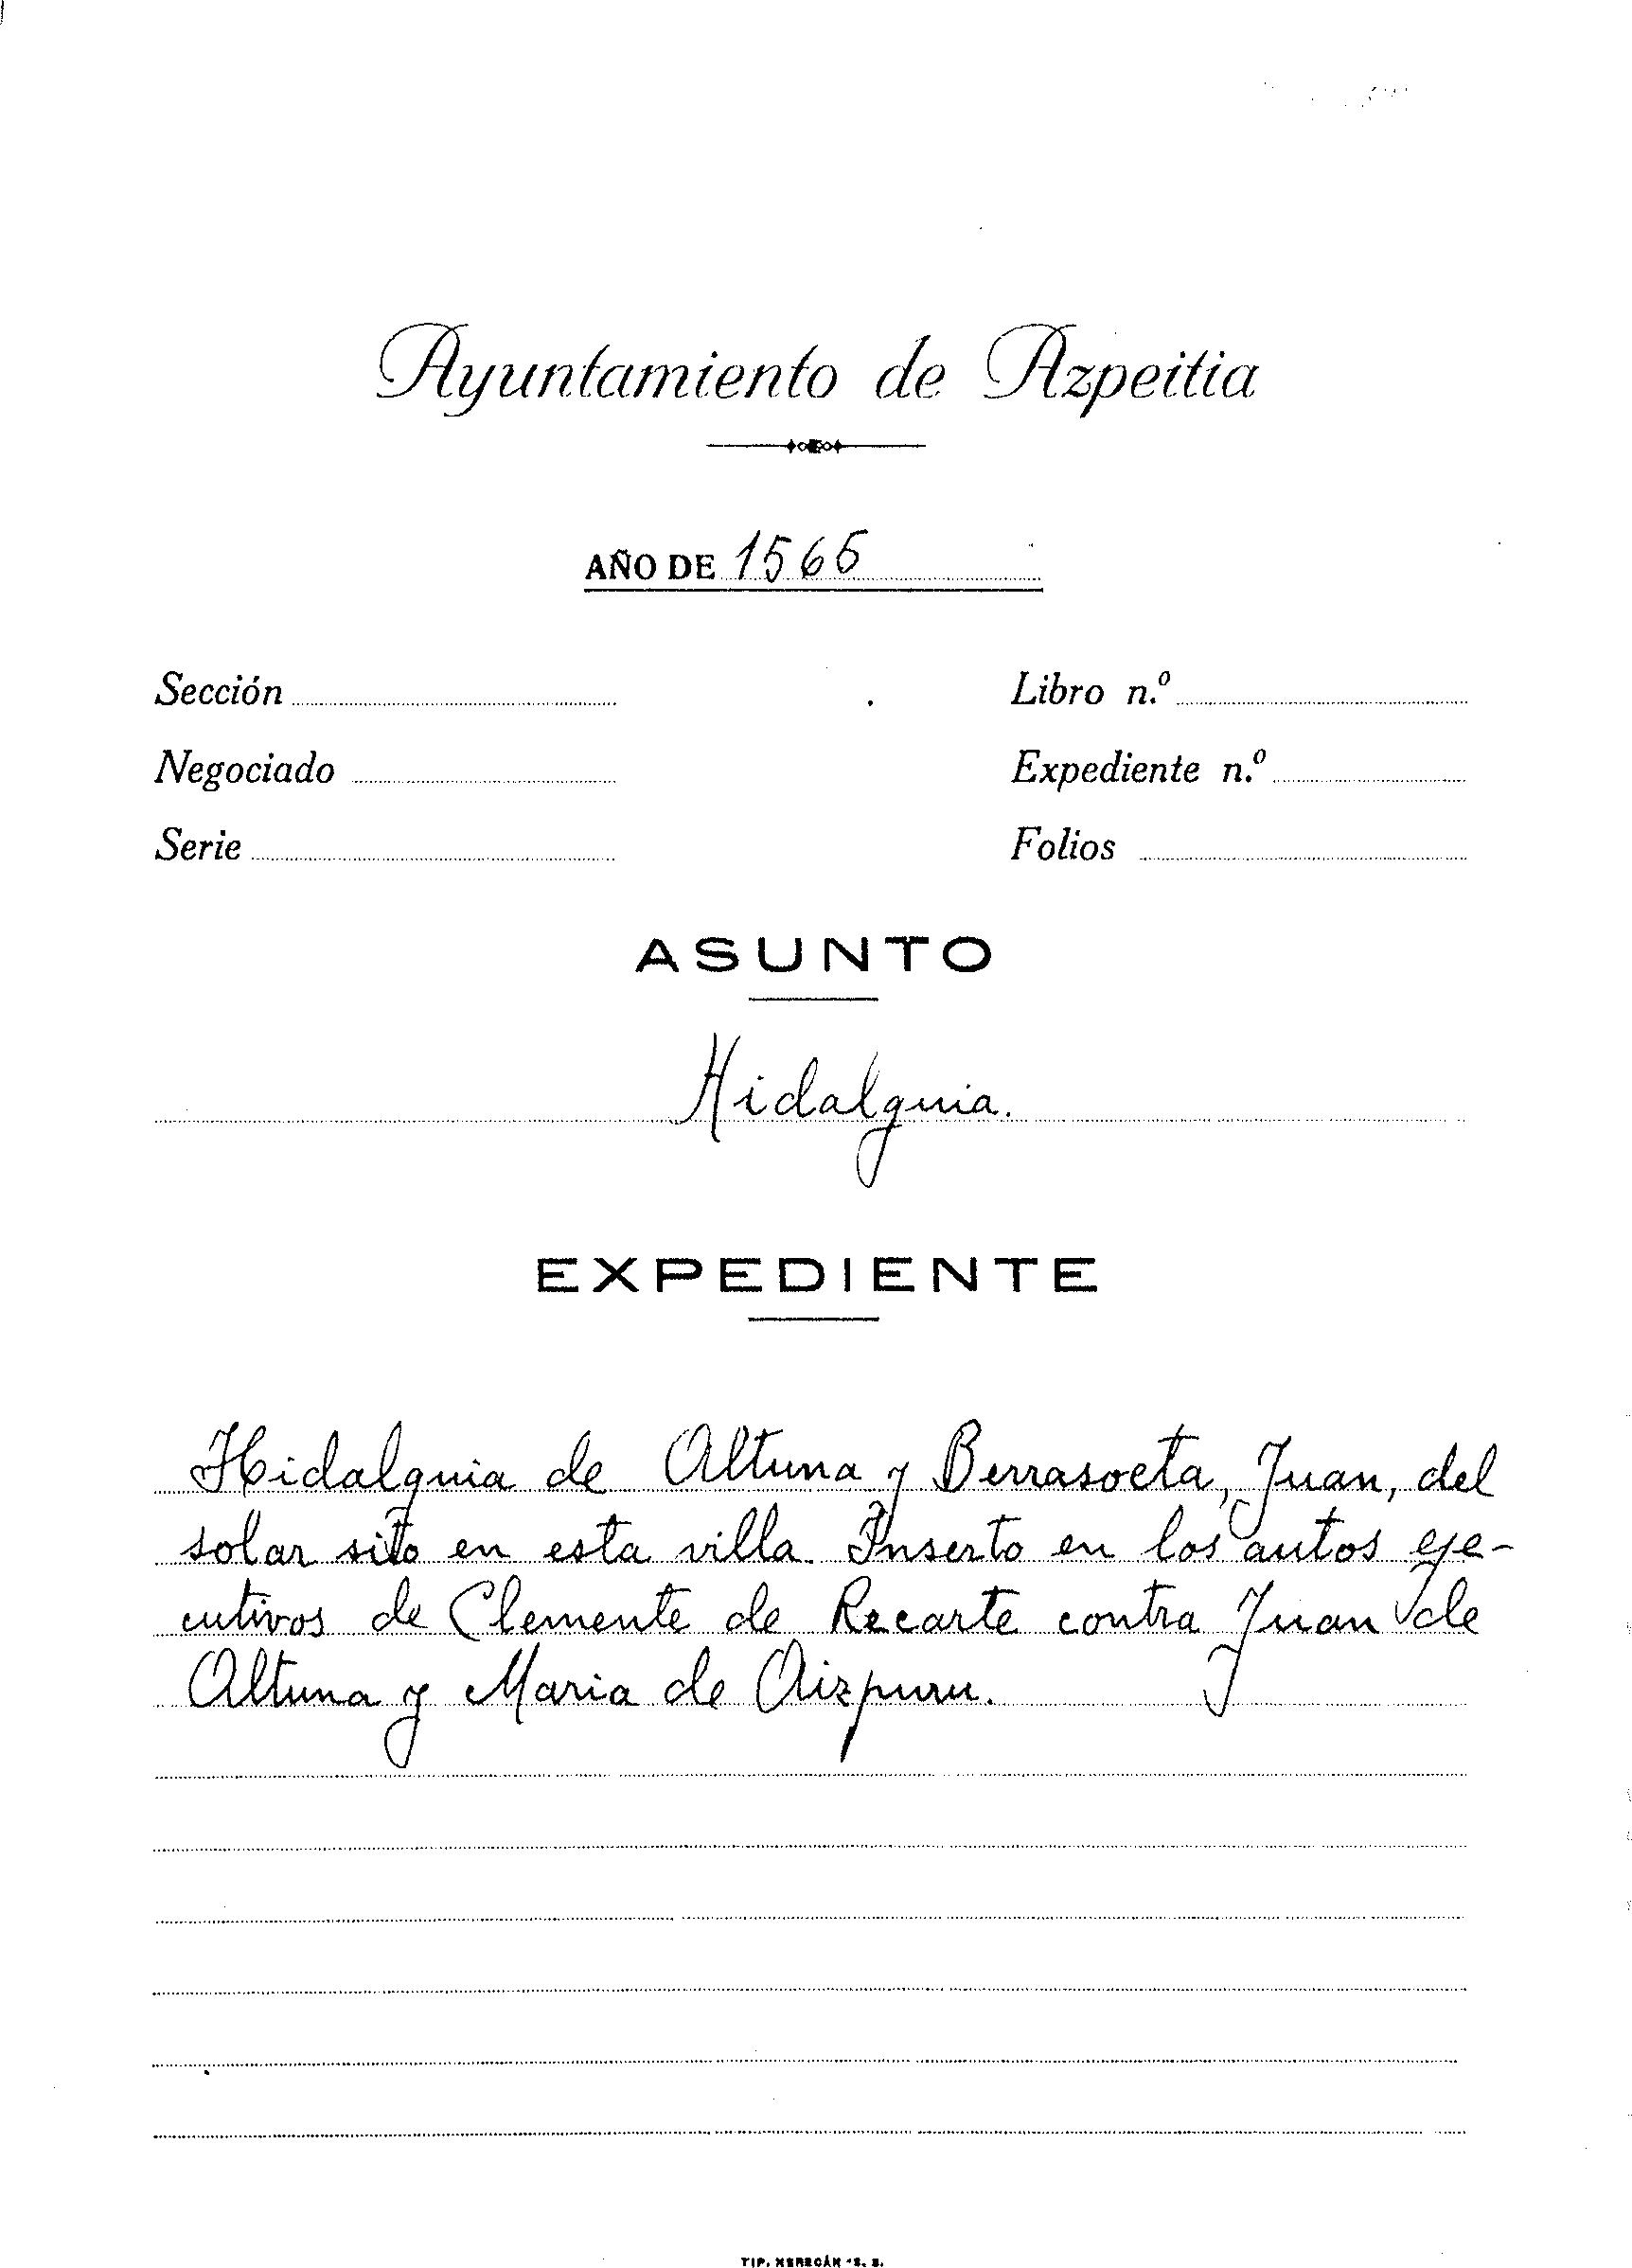 Ayuntamiento de Azpeitia
AÑO DE 1565
Sección
Libro n.º
Negociado
Expediente n.º
Serie
Folios
ASUNTO
Hidalguia.
EXPEDIENTE
Hidalguia de Altuna y Berrasoeta, Juan, del
solar sito en esta villa. Inserto en los autos eje-
cutivos de Clemente de Recarte contra Juan de
Altuna y Maria de Aizpuru.
TIP.